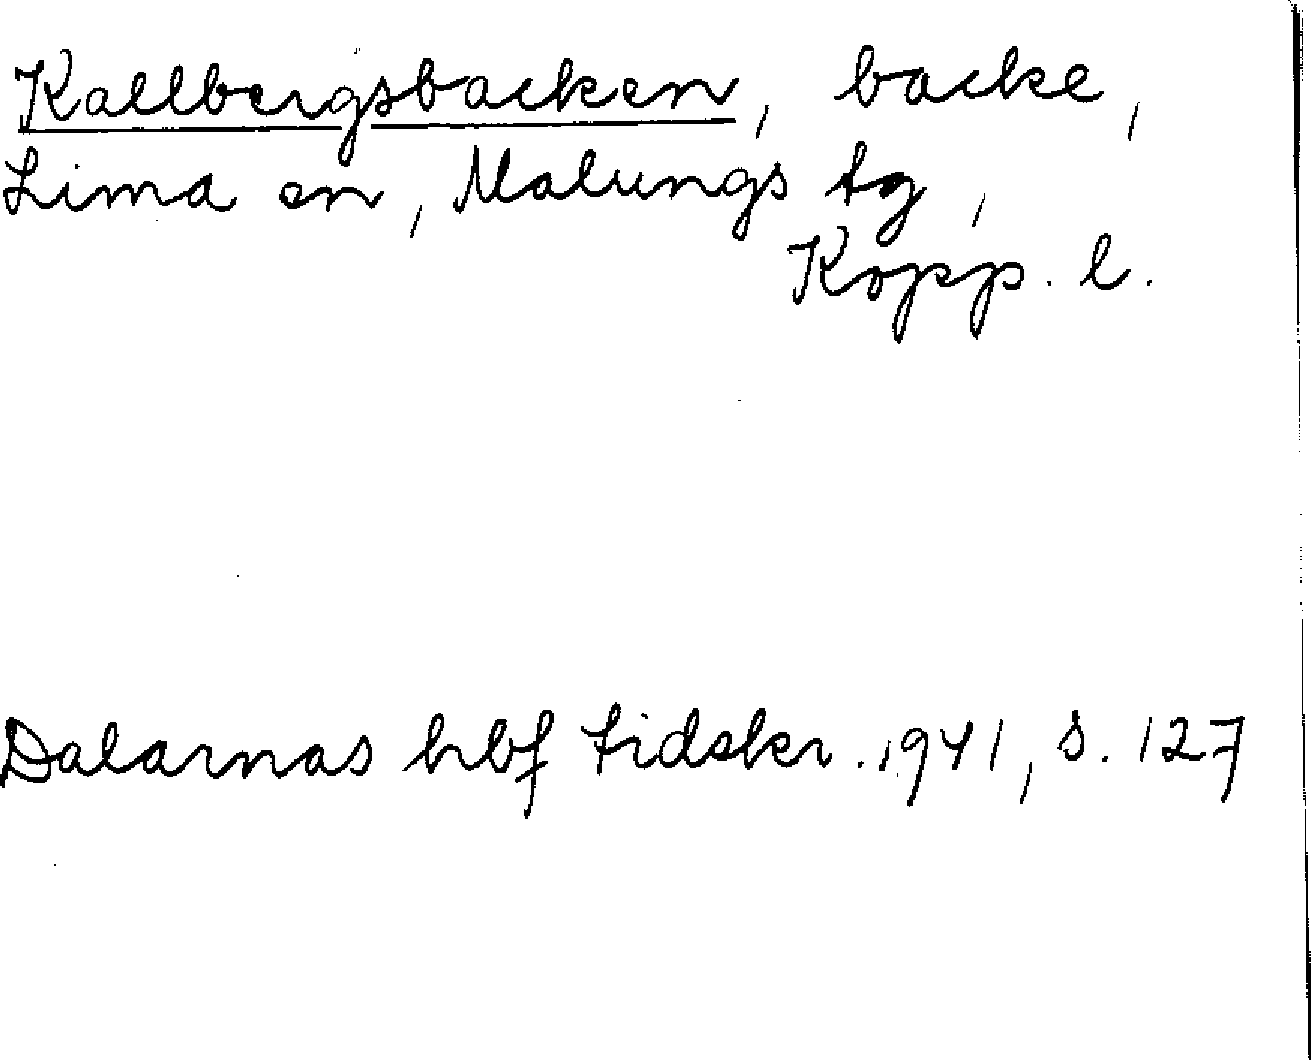 Kallbergsbacken, backe,
Lima sn, Malungs tg,
Kopp. l.
Dalarnas hbf tidskr. 1941, s. 127